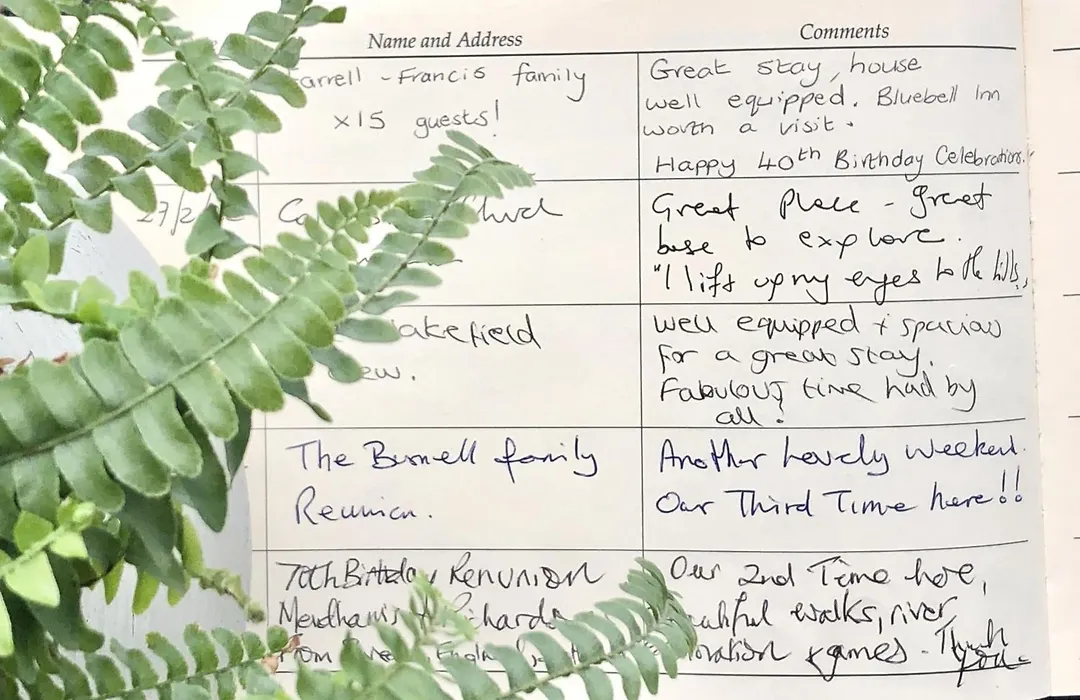 Name and Address
Comments
arrell - Francis family
x15 guests!
Great stay, house
well equipped. Bluebell Inn
worth a visit.
Happy 40th Birthday Celebrations.
27/2
Great Place - great
base to explore.
"I lift up my eyes to the hills,
akefield
ew.
Well equipped + spacious
for a great stay.
Fabulous time had by
all!
The Burnell family
Reunion.
Another Lovely Weekend.
Our Third Time here!!
70th Birthday Renunion
Our 2nd Time here,
walks, river
games. Thank
you